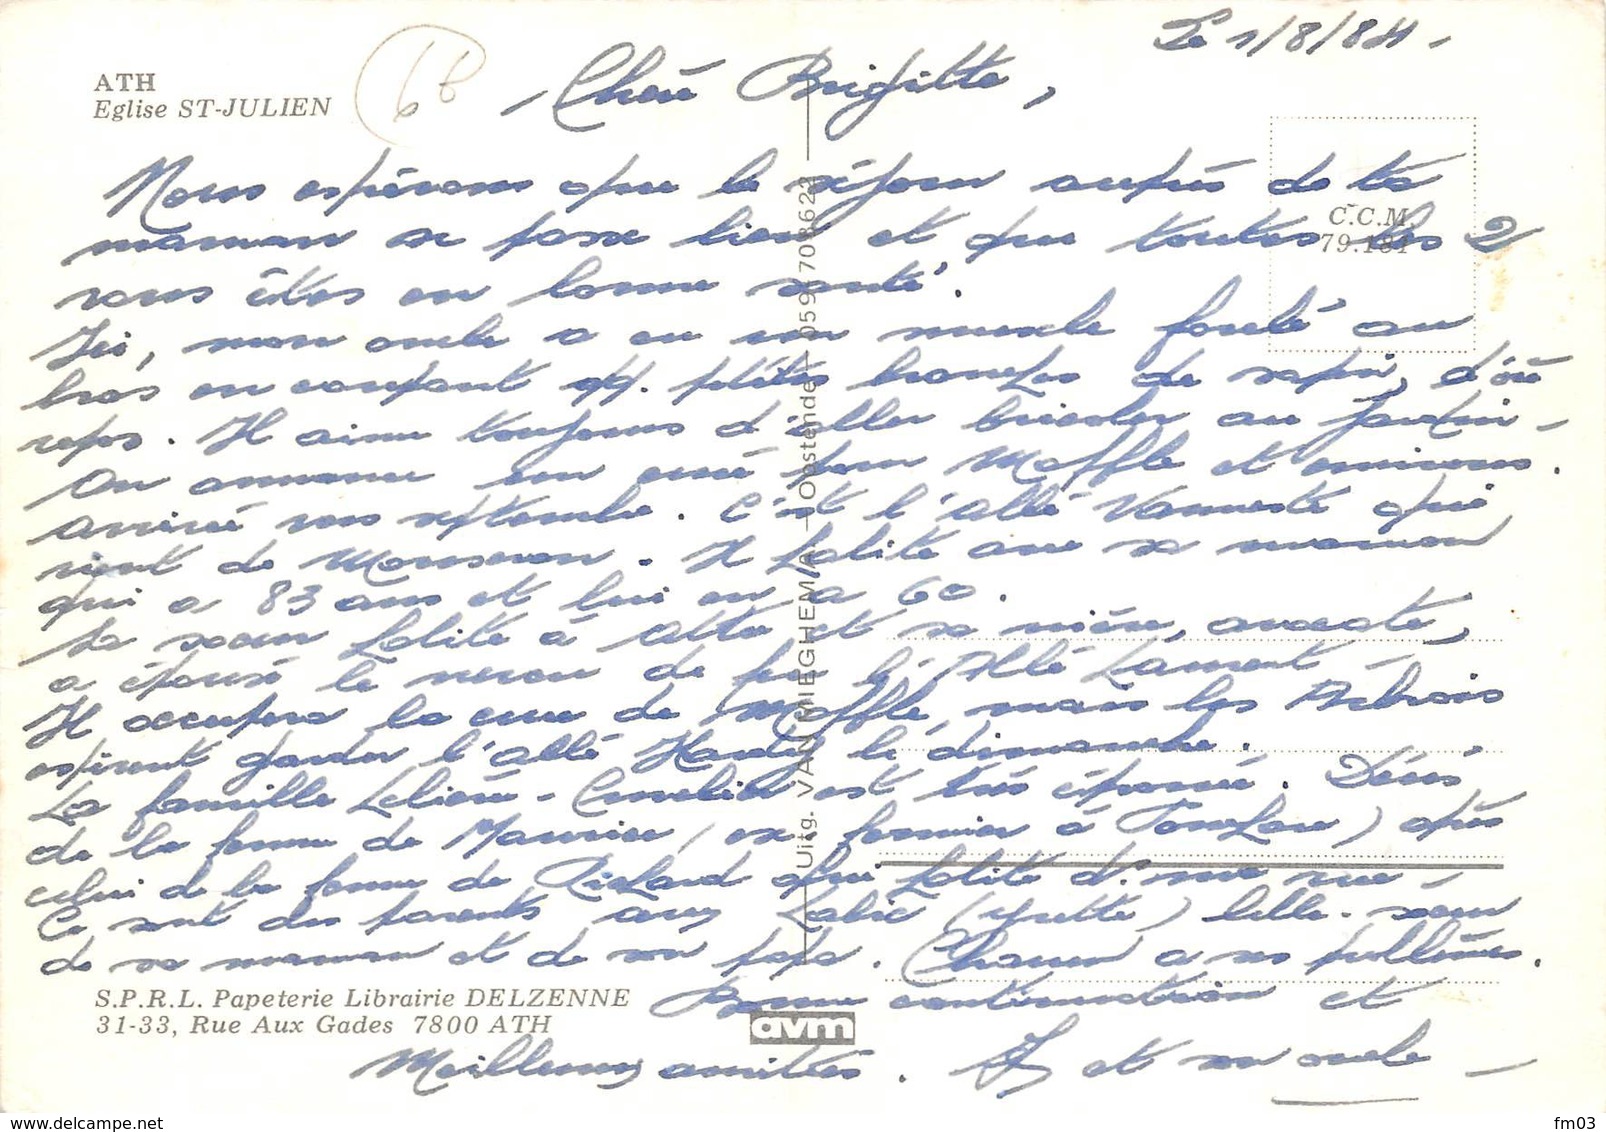 Le 1/8/84 -
ATH
Eglise ST-JULIEN
6b
- Chère Brigitte,
Nous espérons que le séjour auprès de ta
maman se passe bien et que toutes les 2
vous êtes en bonne santé.
Ici, mon oncle a eu un muscle foulé au
bras en coupant qq. petites branches de sapin, d'où
repos. Il aime toujours d'aller bricoler au jardin -
On annonce un curé pour Maffle et environs.
arrivée vers septembre. C'est l'abbé Vanneste qui
vient de Mouscron. Il habite avec sa maman
qui a 83 ans et lui en a 60.
Sa soeur habite à Attre et sa nièce, avocate,
a épousé le neveu de feu l'Abbé Lament -
Il occupera la cure de Maffle, mais les Arbrois
espèrent garder l'abbé Hardy le dimanche.
La famille Lelièvre - est très éprouvée. Décès
de la femme de Maurice (ex. fermier à ) après
celui de la femme de Richard qui habite d. une rue -
Ce sont des parents avec (Yvette) belle-soeur
de sa maman et de son papa. Chacun a ses problèmes.
Bonne continuation et
Meilleures amitiés. et son oncle -
C.C.M.
79.181
Uitg. VAN MIEGHEM A. - Oostende - 059/708622
S.P.R.L. Papeterie Librairie DELZENNE
31-33, Rue Aux Gades 7800 ATH
avm
https://www.delcampe.net
fm03